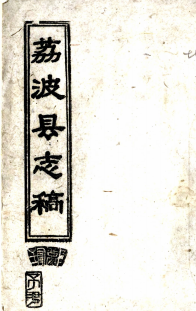 荔波县志稿